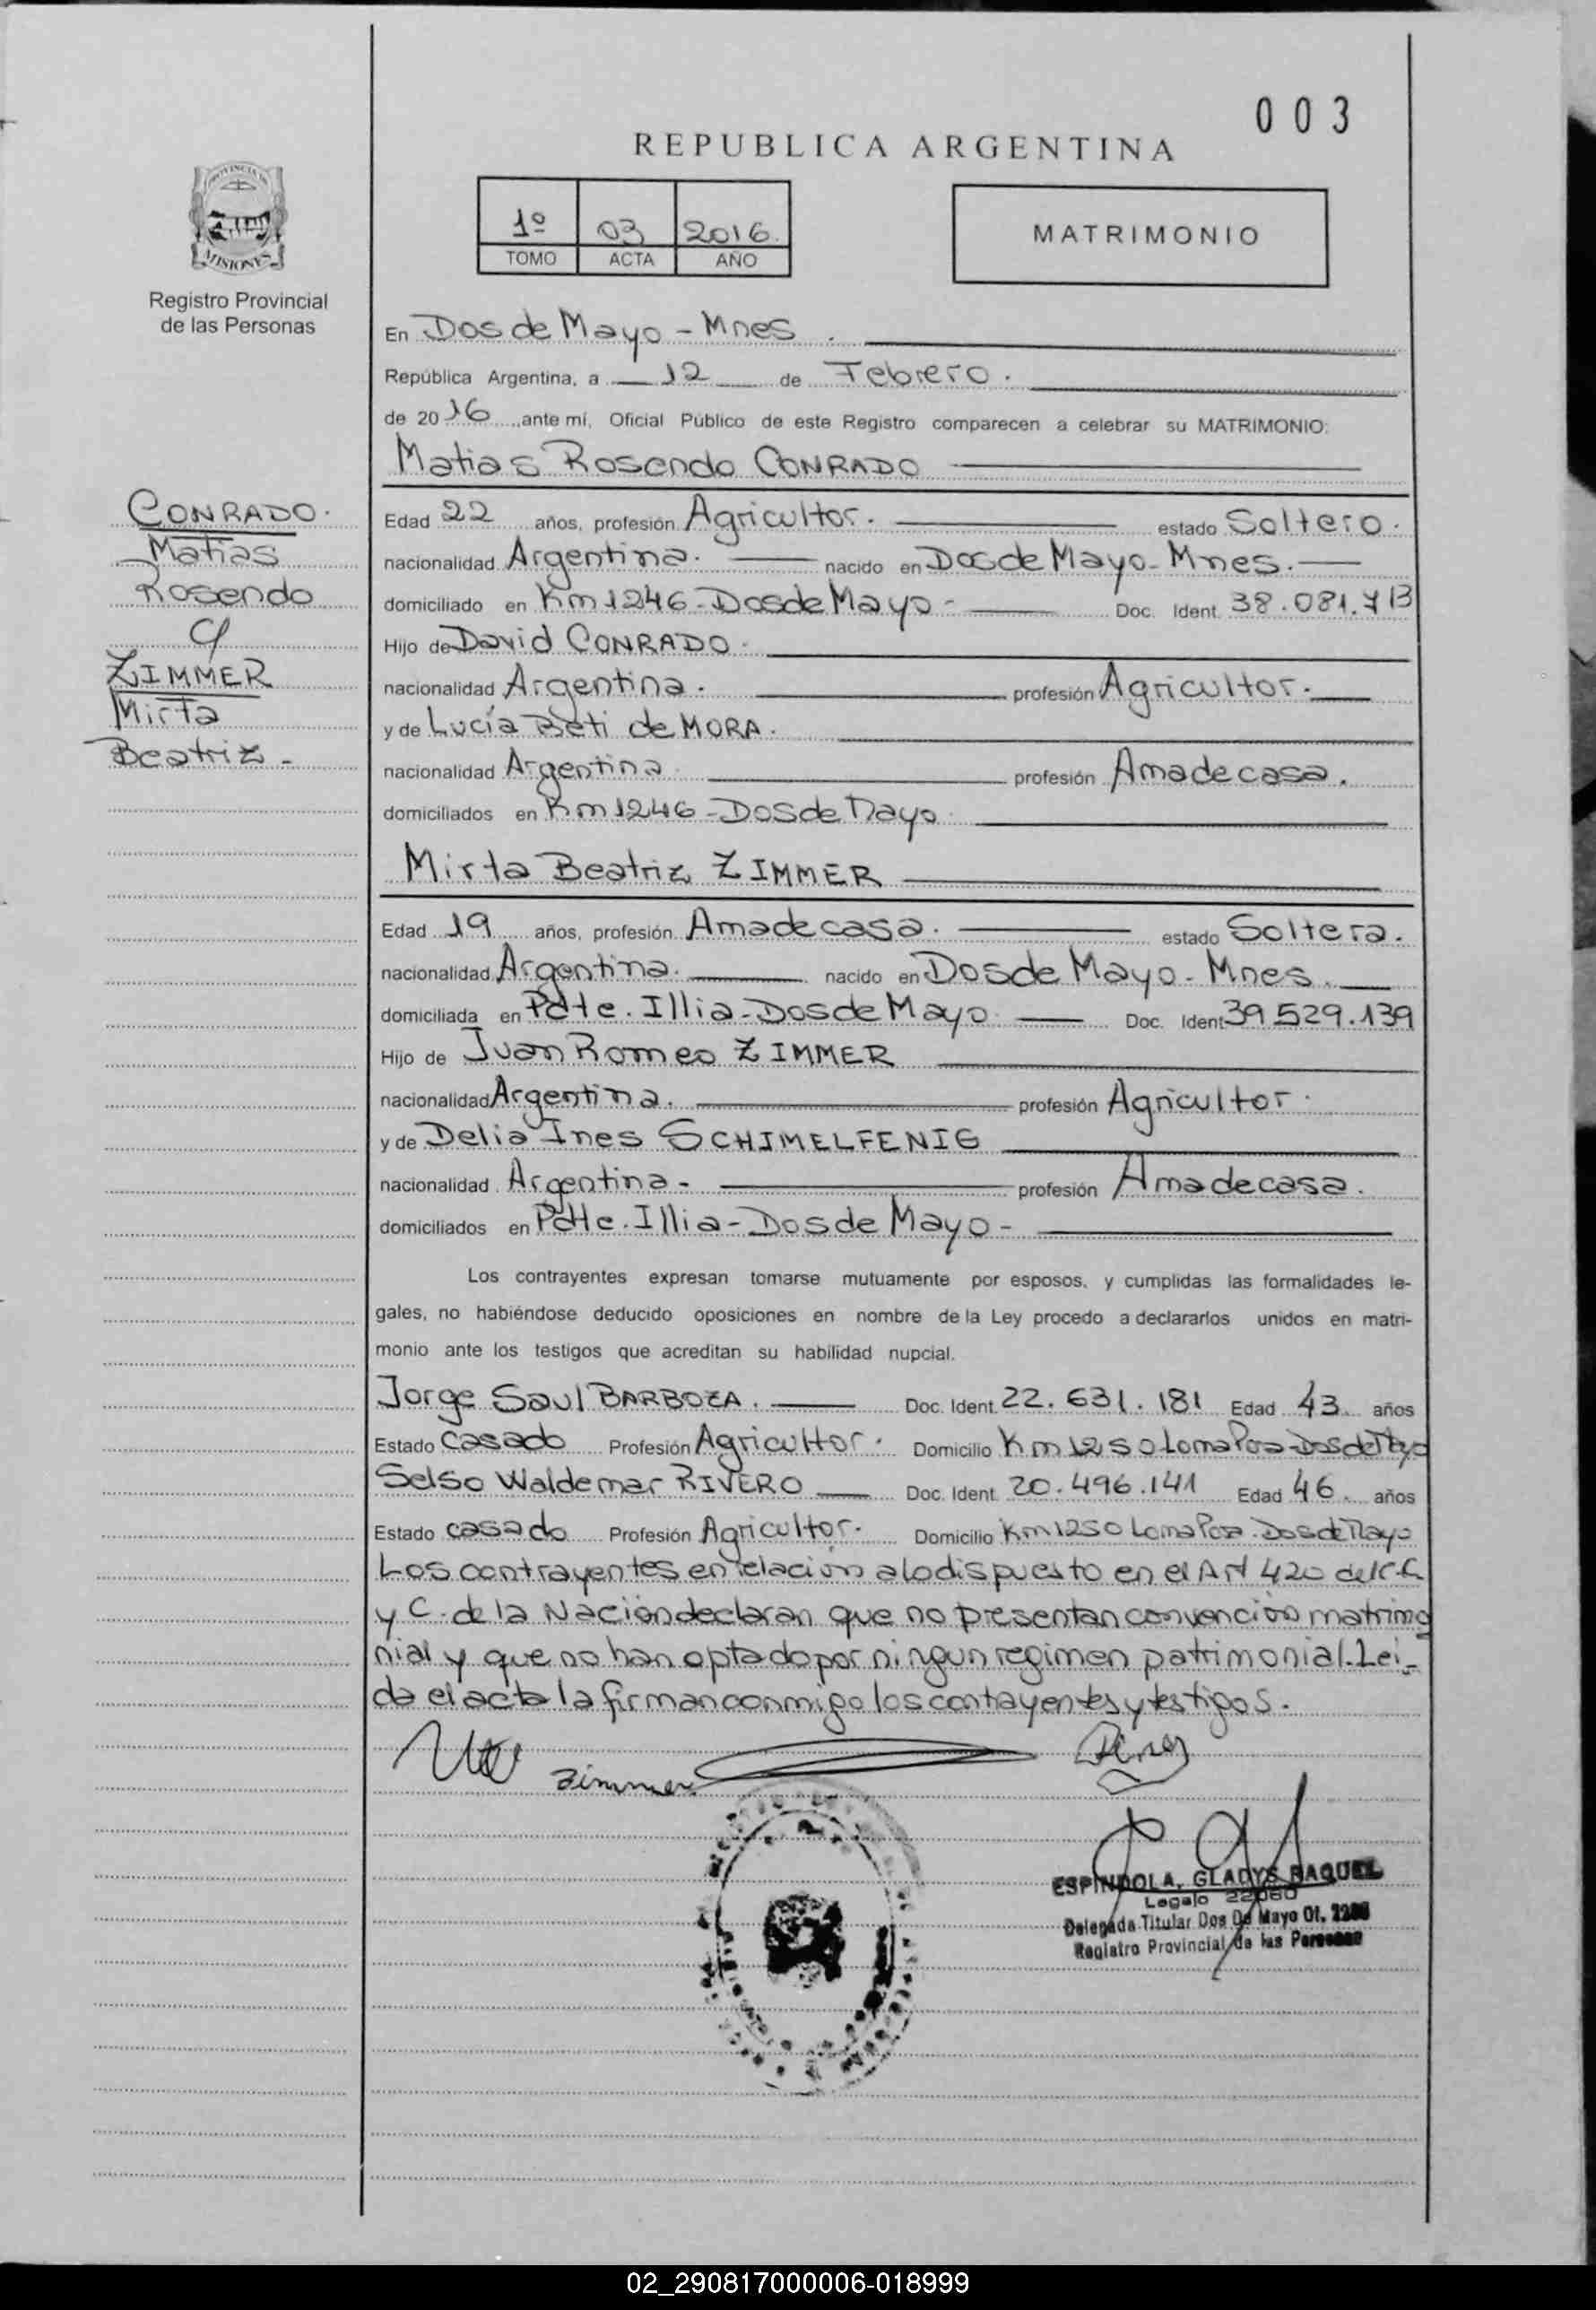 003
REPUBLICA ARGENTINA
PROVINCIA DE
MISIONES
Registro Provincial
de las Personas
1º 03 2016
TOMO ACTA AÑO
MATRIMONIO
En Dos de Mayo - Mnes.
República Argentina, a 12 de Febrero.
de 2016, ante mí, Oficial Público de este Registro comparecen a celebrar su MATRIMONIO:
Matias Rosendo CONRADO
CONRADO.
Matias
Rosendo
c/
ZIMMER
Mirta
Beatriz -
Edad 22 años, profesión Agricultor. estado Soltero.
nacionalidad Argentina. nacido en Dos de Mayo - Mnes.
domiciliado en Km 1246 - Dos de Mayo - Doc. Ident. 38.081.713
Hijo de David CONRADO.
nacionalidad Argentina. profesión Agricultor.
y de Lucía Beti de MORA.
nacionalidad Argentina. profesión Ama de casa.
domiciliados en Km 1246 - Dos de Mayo.
Mirta Beatriz ZIMMER
Edad 19 años, profesión Ama de casa. estado Soltera.
nacionalidad Argentina. nacido en Dos de Mayo - Mnes.
domiciliada en Pdte. Illia - Dos de Mayo. Doc. Ident 39.529.139
Hijo de Juan Romeo ZIMMER
nacionalidad Argentina. profesión Agricultor.
y de Delia Ines SCHIMELFENIG
nacionalidad Argentina - profesión Ama de casa.
domiciliados en Pdte. Illia - Dos de Mayo -
Los contrayentes expresan tomarse mutuamente por esposos, y cumplidas las formalidades le-
gales, no habiéndose deducido oposiciones en nombre de la Ley procedo a declararlos unidos en matri-
monio ante los testigos que acreditan su habilidad nupcial.
Jorge Saul BARBOZA. Doc. Ident. 22.631.181 Edad 43 años
Estado Casado Profesión Agricultor. Domicilio Km 1250 Loma Pora - Dos de Mayo
Selso Waldemar RIVERO Doc. Ident. 20.496.141 Edad 46 años
Estado casado Profesión Agricultor. Domicilio Km 1250 Loma Pora. Dos de Mayo
Los contrayentes en relación a lo dispuesto en el Art 420 del C.C.
y C. de la Nación declaran que no presentan convención matrimo
nial y que no han optado por ningun regimen patrimonial. Lei-
da el acta la firman conmigo los contrayentes y testigos.
Zimmer
ESPINDOLA, GLADYS RAQUEL
Legajo 22060
Delegada Titular Dos De Mayo Of.
Registro Provincial de las Personas
02_290817000006-018999